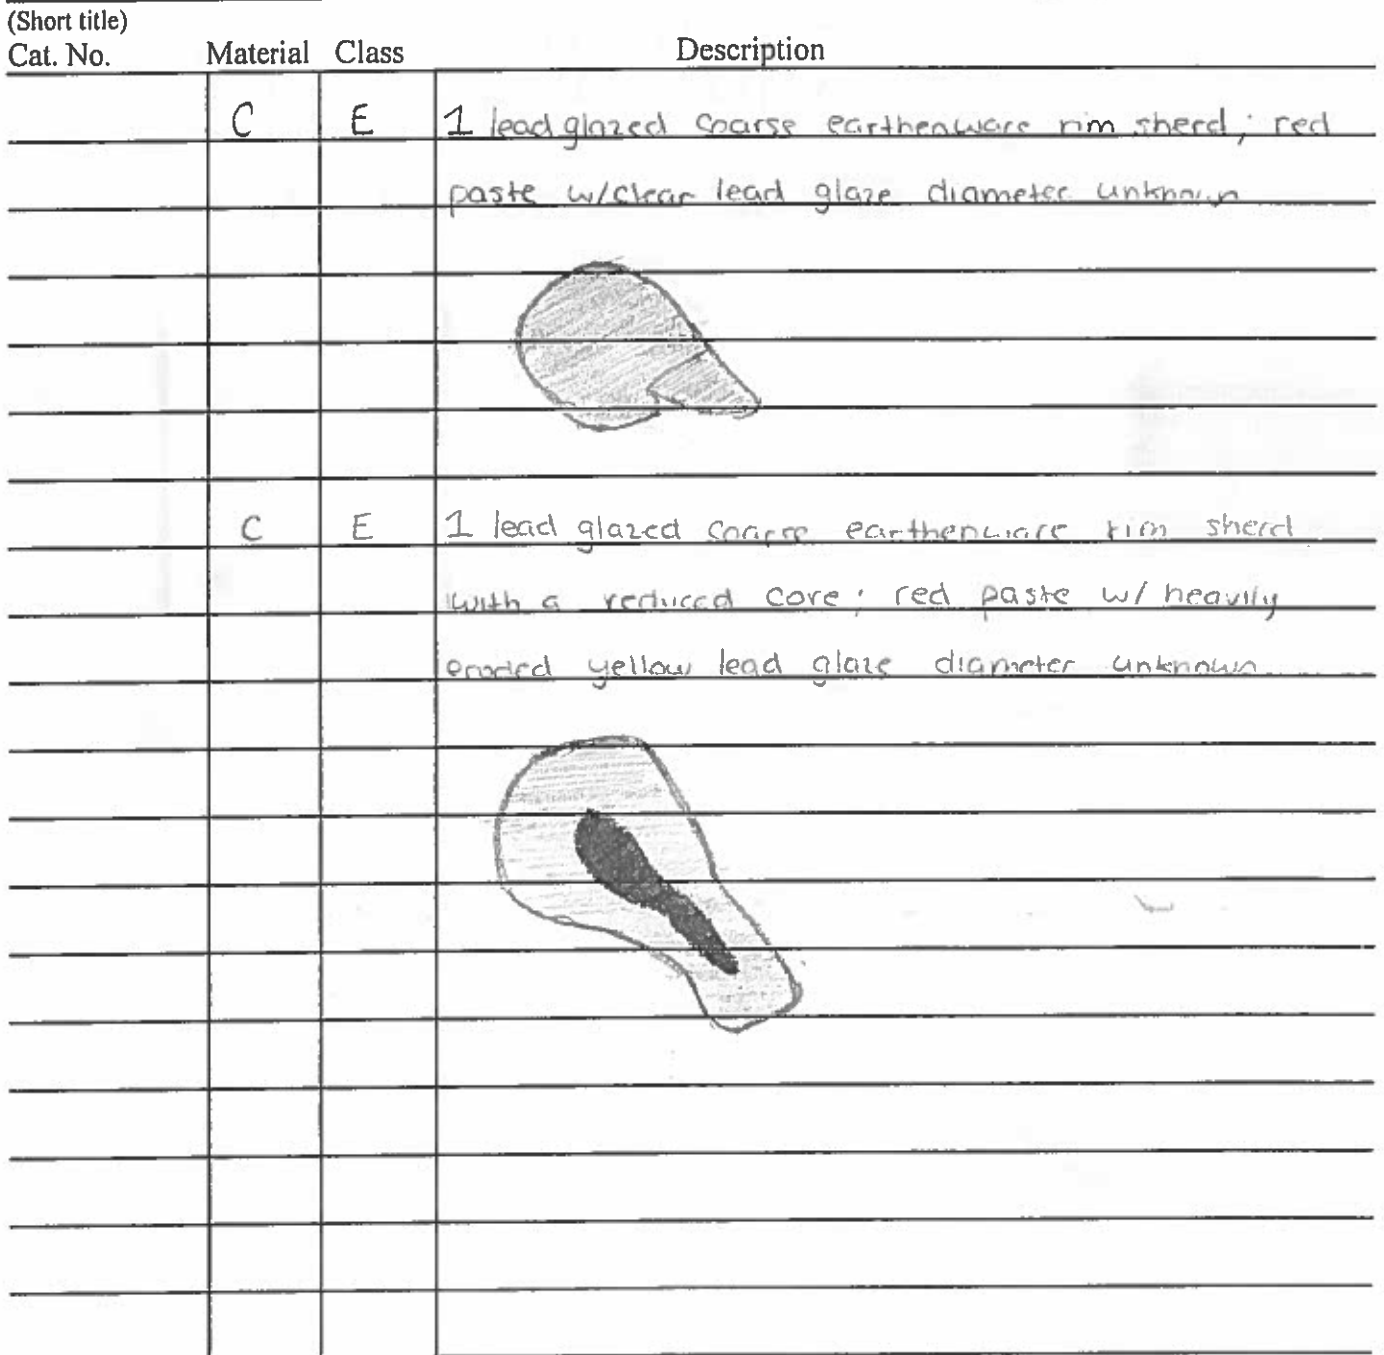 (Short title)
Cat. No. Material Class Description
C E 1 lead glazed coarse earthenware rim sherd; red
paste w/clear lead glaze diameter unknown
C E 1 lead glazed coarse earthenware rim sherd
with a reduced core; red paste w/ heavily
eroded yellow lead glaze diameter unknown